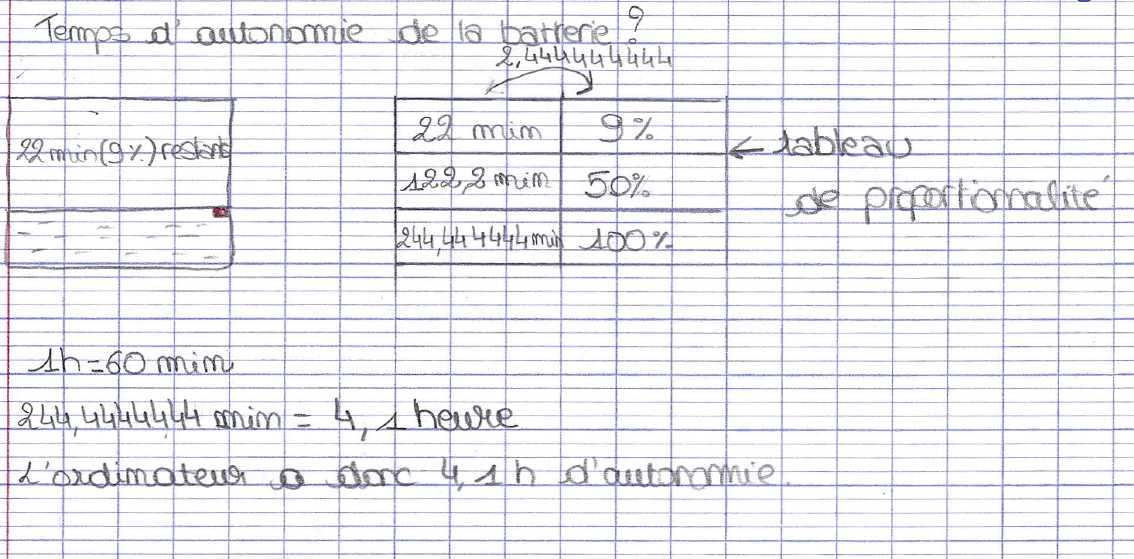 Temps d'autonomie de la batterie ?
2,444444444
22 min(9%) restant
22 min 9%
122,2 min 50%
244,444444 min 100%
← tableau
de proportionnalité
1h=60 min
244,4444444 min = 4,1 heure
L'ordinateur a donc 4,1 h d'autonomie.